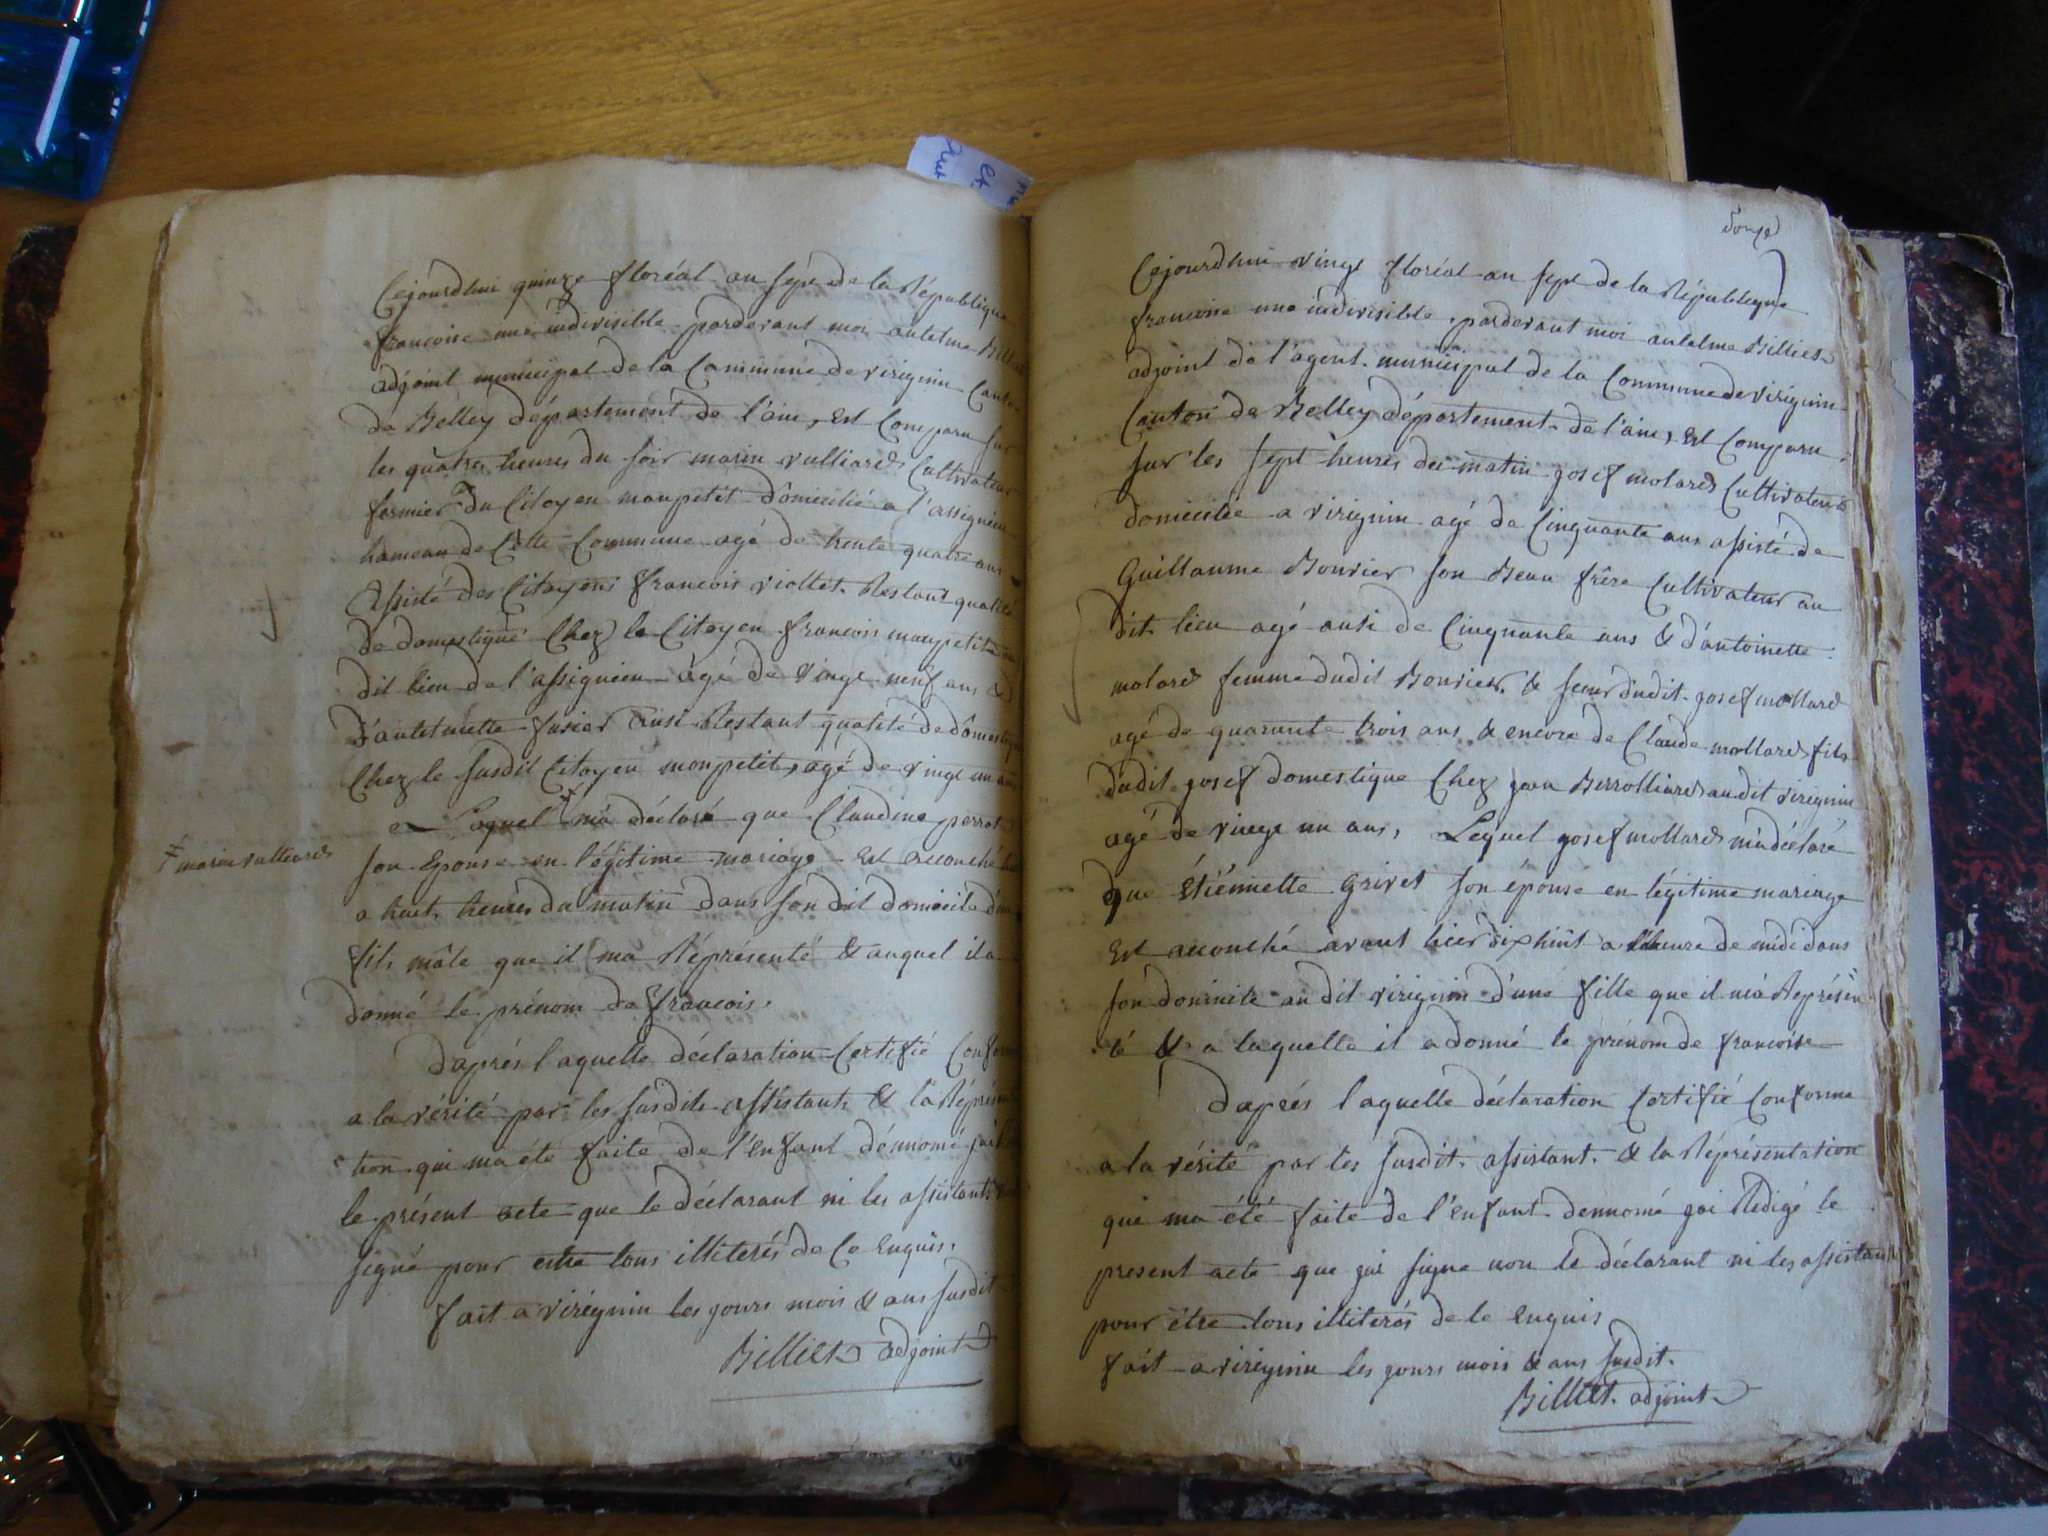 Cejourdhui quinze floréal an sept de la République
francoise une indivisible pardevant moi antelme Billiet
adjoint municipal de la Commune de virignin Canton
de Belley département de l'ain, est Comparu sur
les quatres heures du soir marin vulliard Cultivateur
fermier du Citoyen monpetit domicilié a l'assignieu
hameau de Cette Commune agé de trente quatre ans
Assisté des Citoyens francois viollet Restant qualité
de domestique Chez le Citoyen francois monpetit au
dit lieu de l'assignieu agé de vingt neuf ans &
d'antelmette fusier ausi Restant qualité de domestique
Chez le susdit Citoyen monpetit, agé de vingt un ans
Laquel ma déclaré que Claudine perret
‡ marin vulliard
son Epouse en légitime mariage Est accouché
a huit heures du matin dans son dit domicile d'un
fils mâle que il ma Réprésenté & auquel il a
donné le prénom de francois.
Daprés laquelle déclaration Certifié Conforme
a la vérité par les susdits assistants & la Réprésen
tion qui ma été faite de l'enfant dénnomé jai
le présent acte que le déclarant ni les assistants
signé pour estre tous illiterés de Ce Enquis.
fait a virignin les jours mois & ans susdit
Billiet adjoint
douze
Cejourdhui vingt floréal an sept de la République
francoise une indivisible pardevant moi antelme Billiet
adjoint de l'agent municipal de la Commune de virignin
Canton de Belley département de l'ain, est Comparu
sur les sept heures du matin josef molard Cultivateur
domicilié a virignin agé de Cinquante ans assisté de
Guillaume Bouvier son Beau frère Cultivateur au
dit lieu agé ausi de Cinquante ans & d'antoinette
molard femme dudit Bouvier & seur dudit josef mollard
agé de quarante trois ans & encore de Claude mollard fils
dudit josef domestique Chez jean Berrolliard audit virignin
agé de vingt un ans, Lequel josef mollard m'a déclaré
que Etiénnette Grivet son épouse en légitime mariage
Est accouché avant hier dixhuit a l'heure de midi dans
son dominile audit virignin d'une fille que il m'a Représen
té & a laquelle il a donné le prénom de francoise
Daprés laquelle déclaration Certifié Conforme
a la vérité par les susdit assistant & la Réprésentation
qui ma été faite de l'enfant dennomé jai Rédigé le
present acte que jai signe non le déclarant ni les assistan
pour être tous illiterés de le enquis
fait a virignin les jours mois & ans susdit.
Billiet adjoint